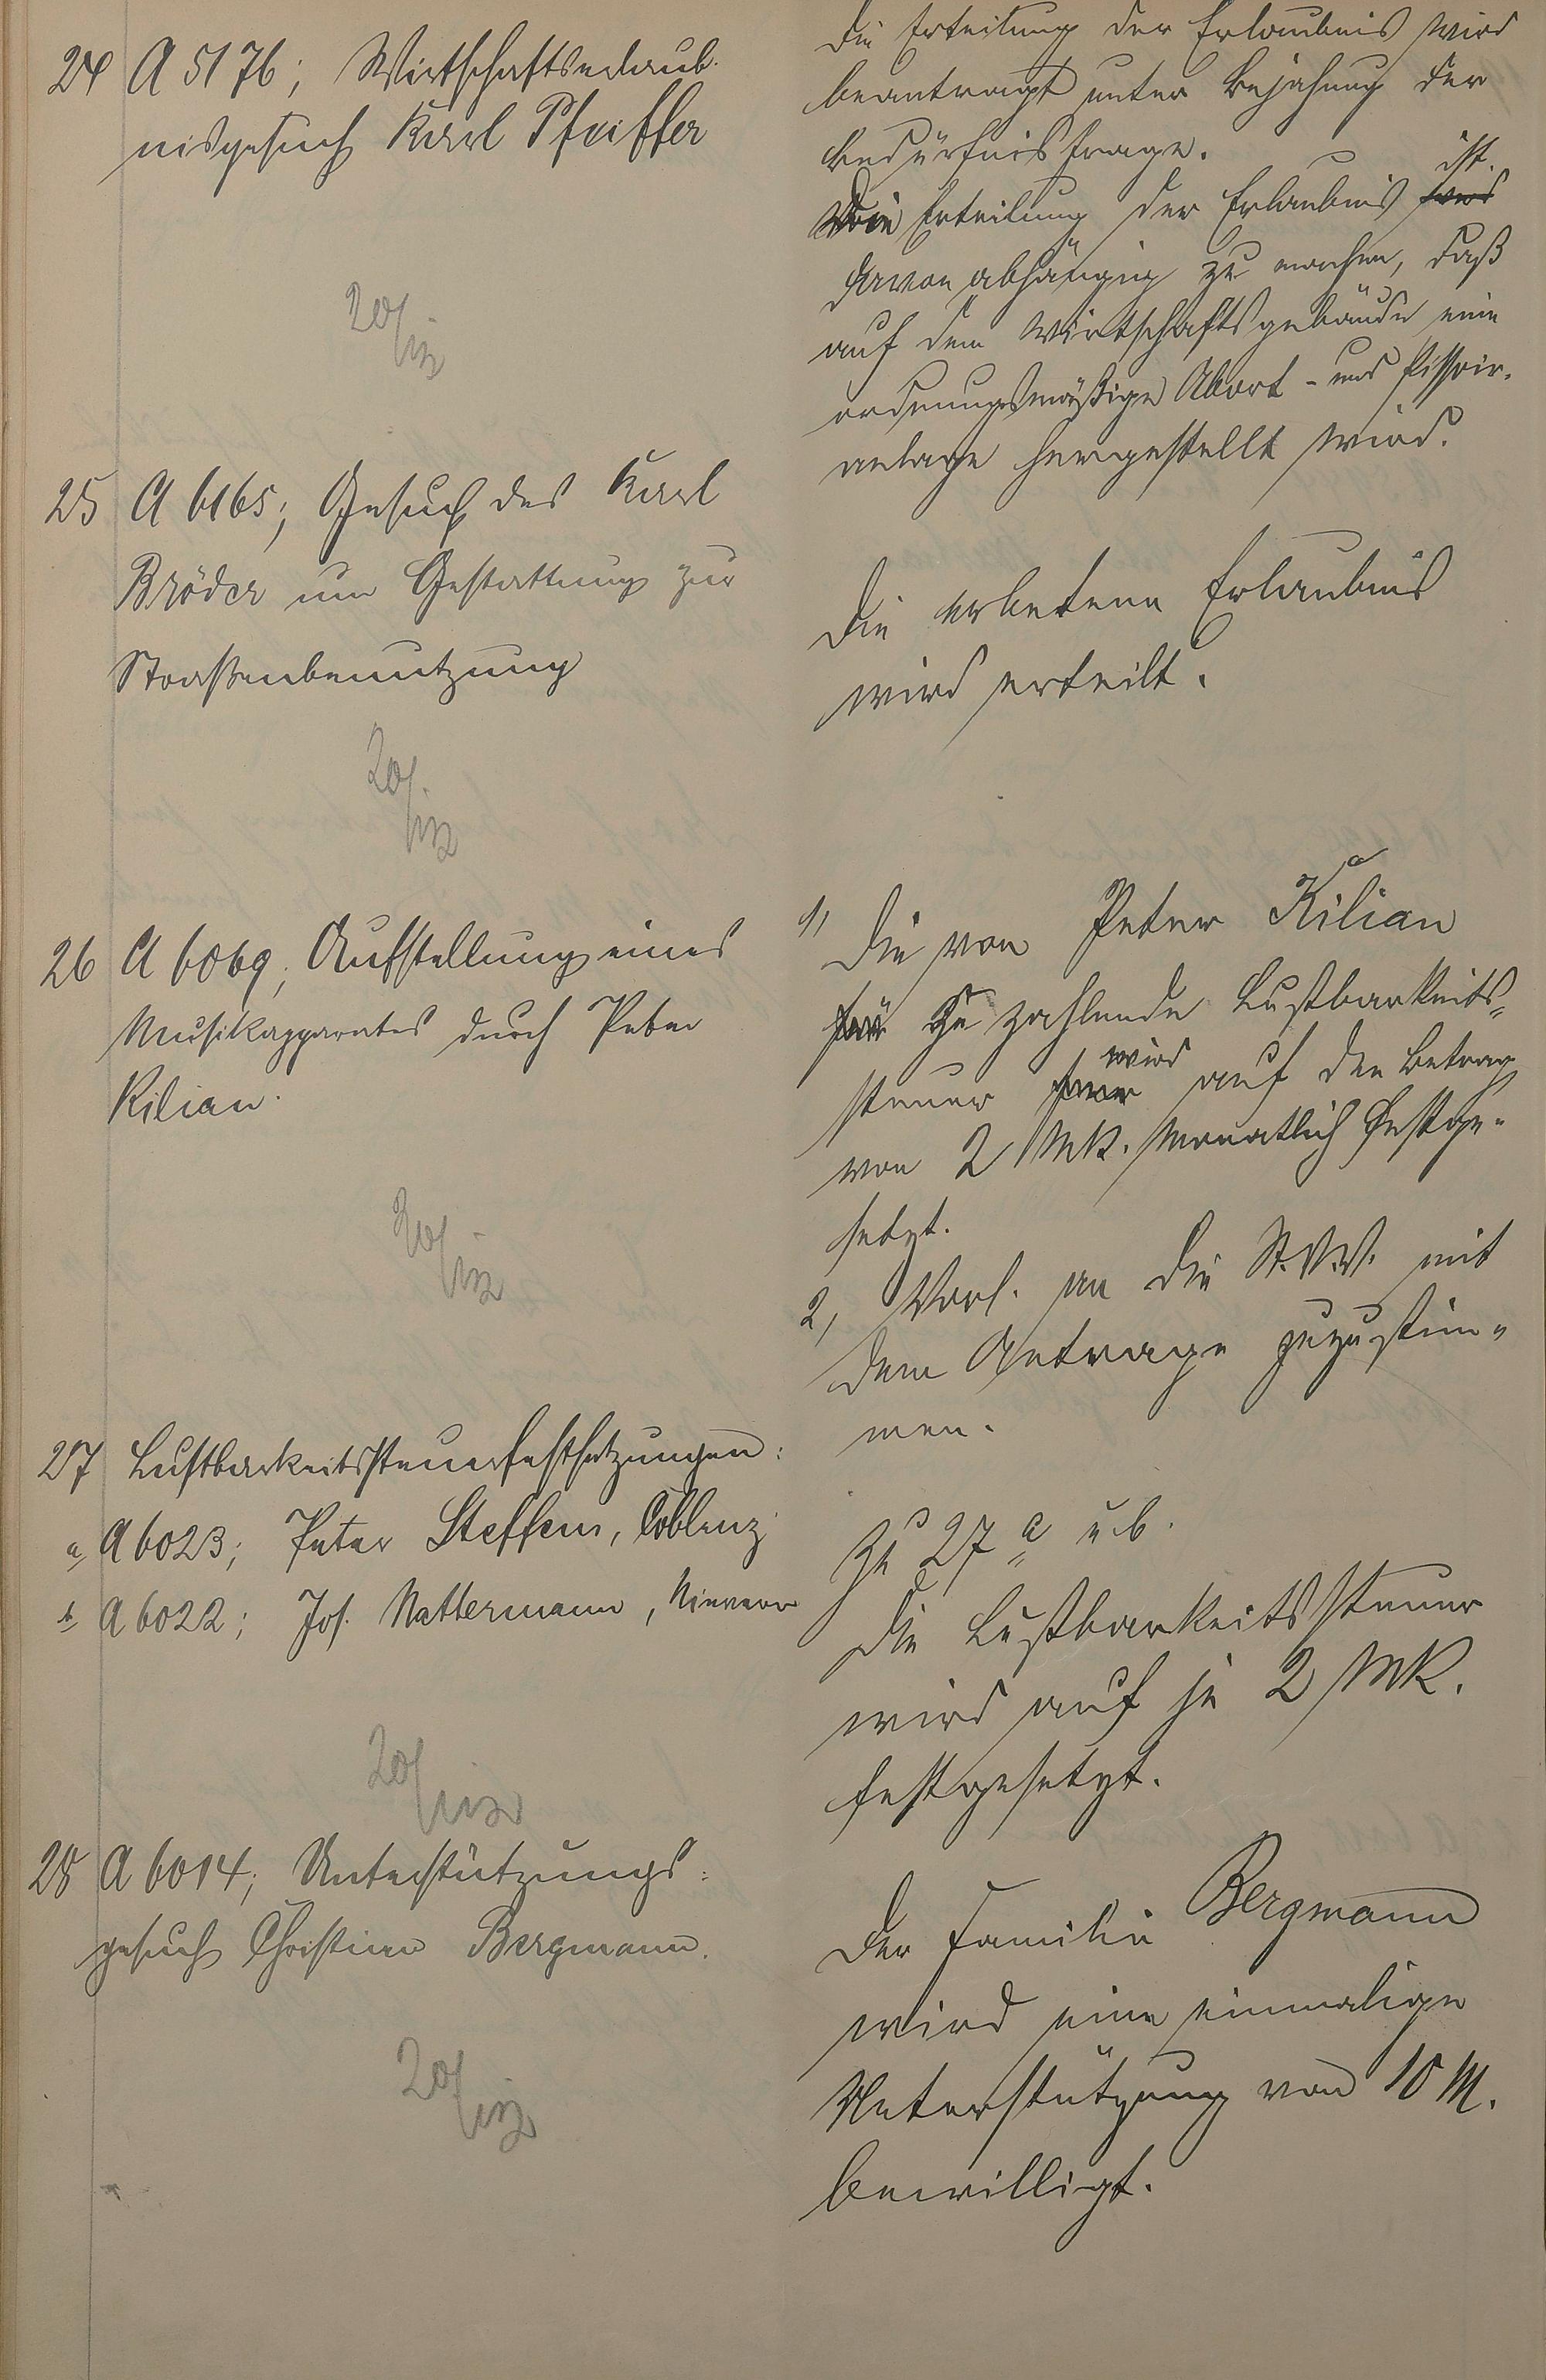 24 A 5176; Wirtschaftserlaub-
nisgesuch Karl Pfeiffer
Die Erteilung der Erlaubnis wird
beantragt unter Bejahung der
Bedürfnisfrage.
Die Erteilung der Erlaubnis ist
davon abhängig zu machen, daß
auf dem Wirtschaftsgebäude eine
ordnungsmäßige Abort- und Pissoir-
anlage hergestellt wird.
25 A 6165; Gesuch des Karl
Bröder um Gestattung zur
Straßenbenutzung
Die erbetene Erlaubnis
wird erteilt.
26 A 6069, Aufstellung eines
Musikapparates durch Peter
Kilian.
1, Die von Peter Kilian
zu zahlende Lustbarkeits-
steuer wird auf den Betrag
von 2 Mk. monatlich festge-
setzt.
2, Vorl. an die St.V.V. mit
dem Antrage zuzustim-
men.
27 Lustbarkeitssteuerfestsetzungen:
a, A 6023; Peter Steffens, Coblenz
b, A 6022; Jos. Nattermann, Nievern
Zu 27 a u b.
Die Lustbarkeitssteuer
wird auf je 2 Mk.
festgesetzt.
28 A 6014; Unterstützungs-
gesuch Christian Bergmann.
Der Familie Bergmann
wird eine einmalige
Unterstützung von 10 M.
bewilligt.